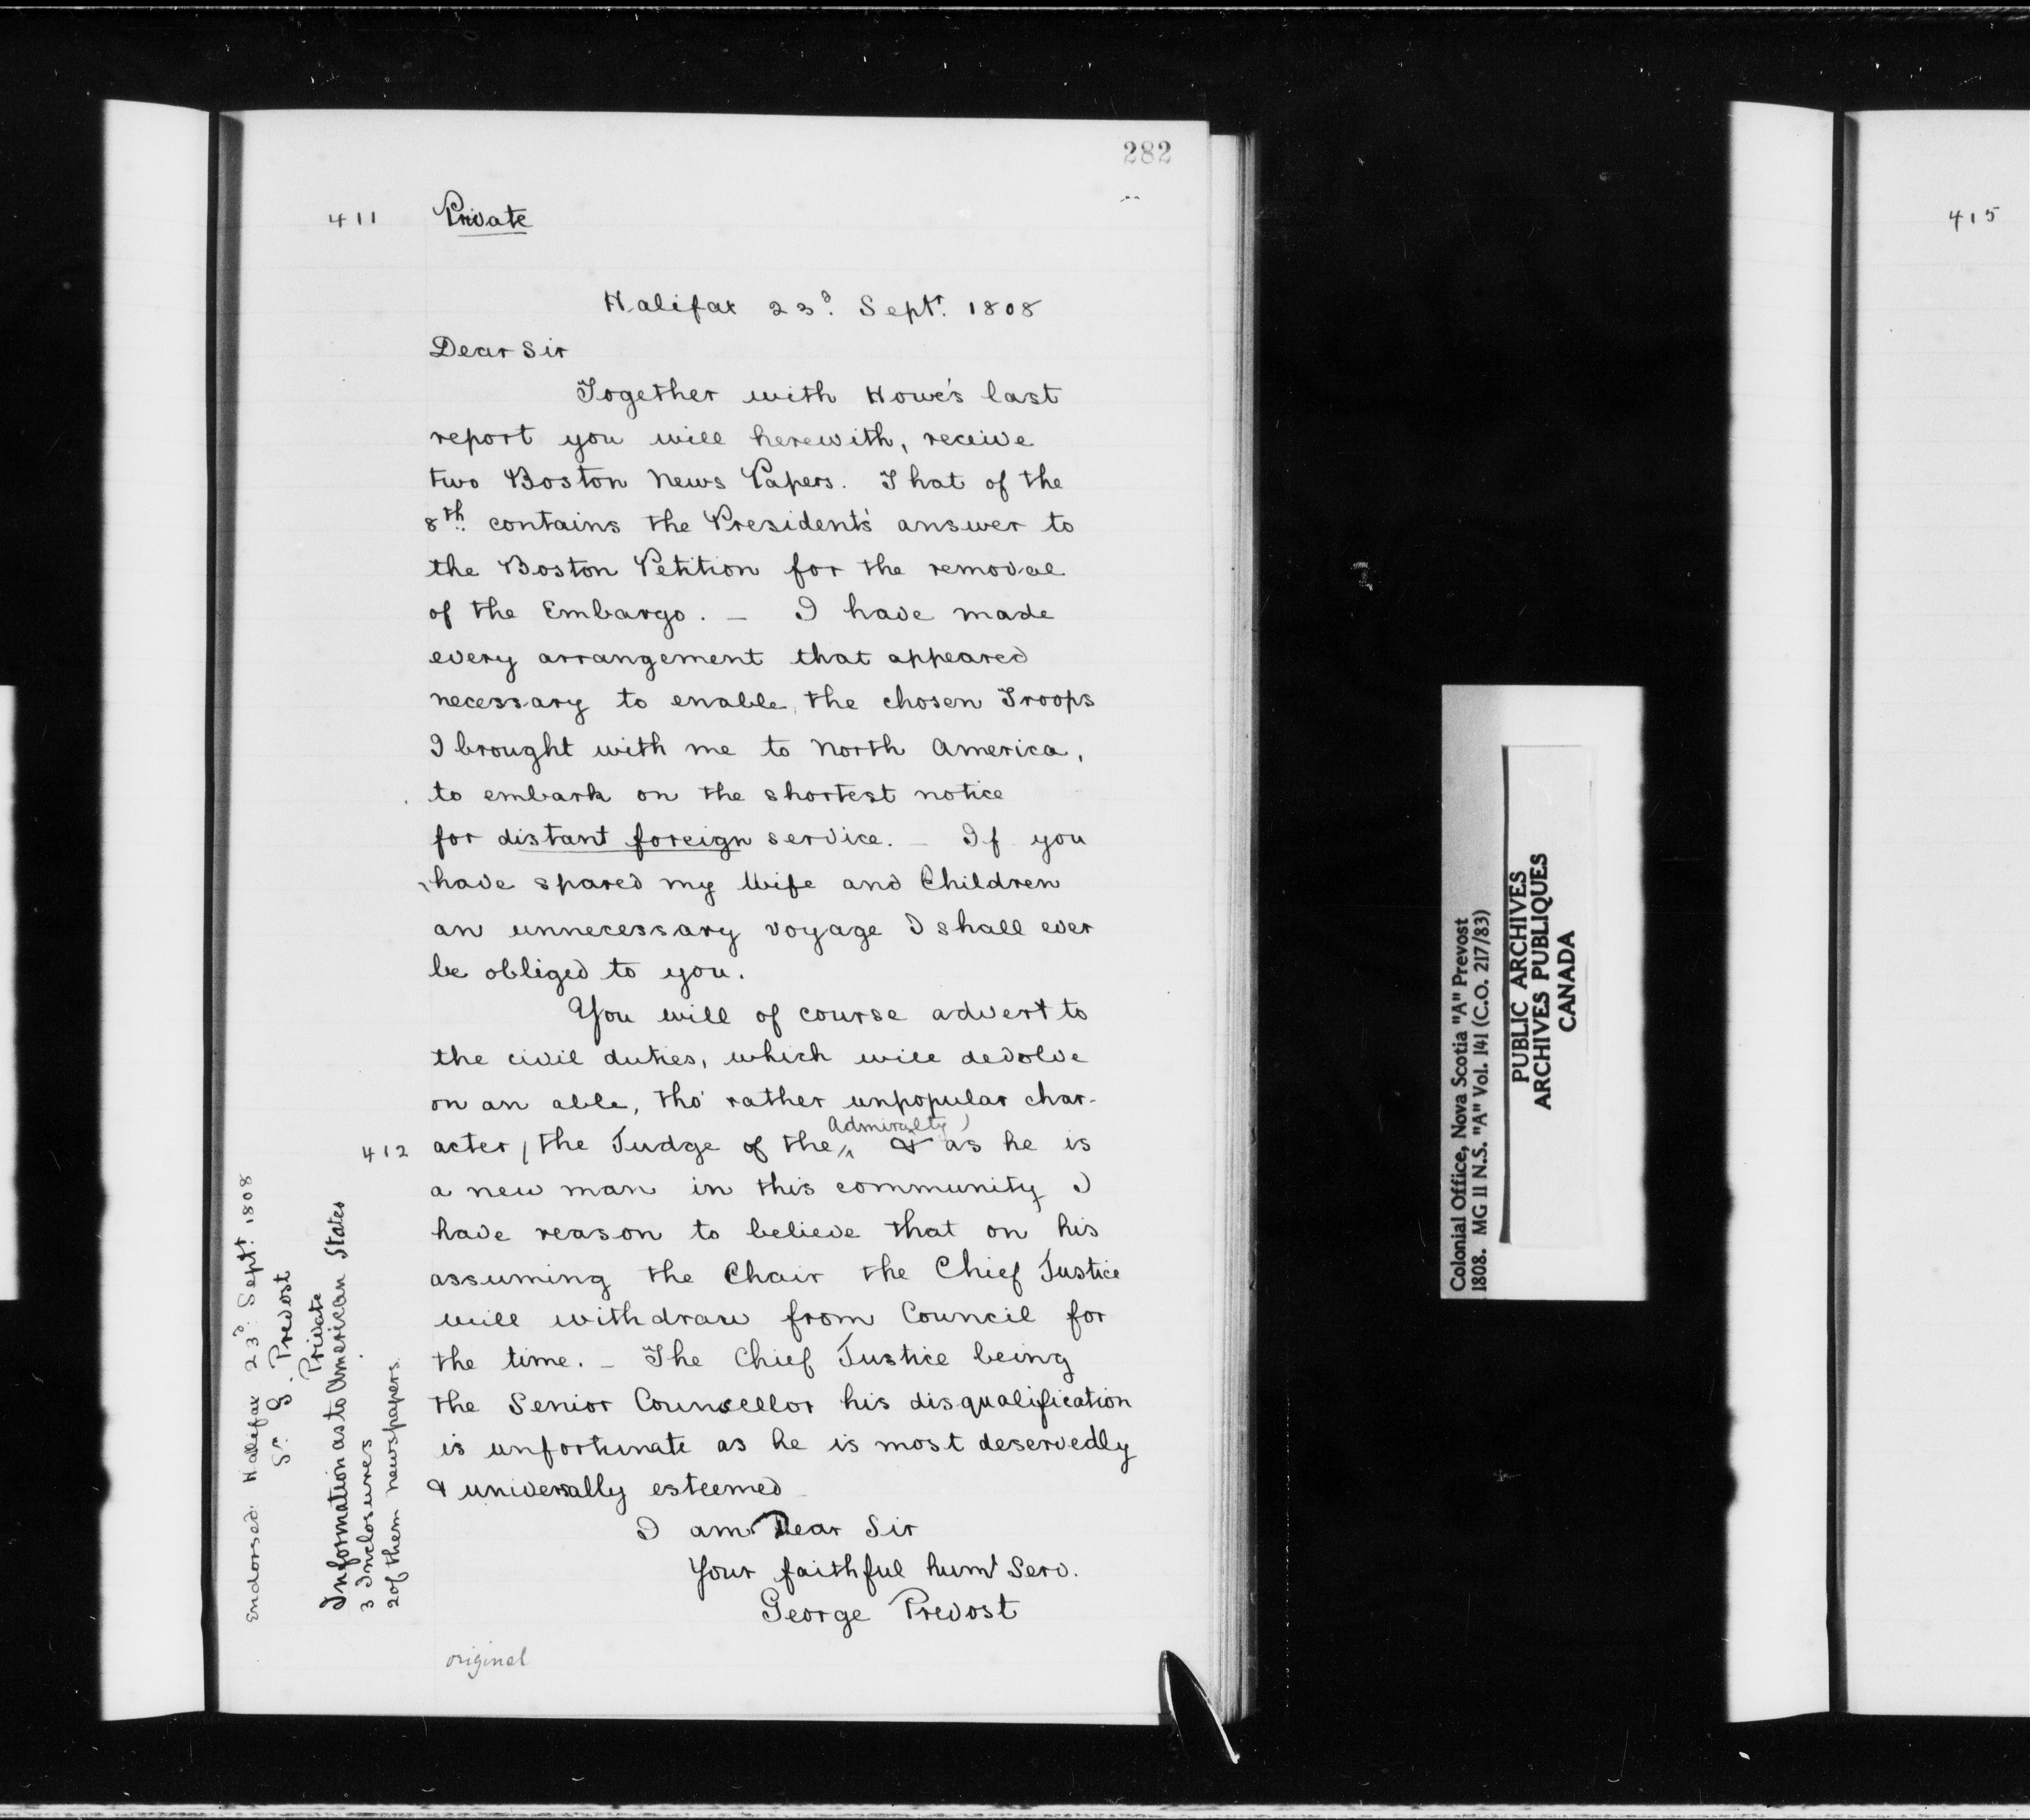 282
411 Private
Halifax 23d. Sept. 1808
Dear Sir
Together with Howe's last
report you will herewith, receive
two Boston News Papers. That of the
8th. contains the President's answer to
the Boston Petition for the removal
of the Embargo. — I have made
every arrangement that appeared
necessary to enable, the chosen Troops
I brought with me to North America,
to embark on the shortest notice
for distant foreign service. — If you
have spared my Wife and Children
an unnecessary voyage I shall ever
be obliged to you.
You will of course advert to
the civil duties, which will devolve
on an able, tho' rather unpopular char-
412 acter, (the Judge of the Admiralty) & as he is
a new man in this community I
have reason to believe that on his
assuming the Chair the Chief Justice
will withdraw from Council for
the time. — The Chief Justice being
the Senior Councellor his disqualification
is unfortunate as he is most deservedly
& universally esteemed
I am Dear Sir
Your faithful huml Serv.
George Prevost
original
Endorsed. Halifax 23d. Sept. 1808
Sr. G. Prevost
Private
Information as to American States
3 Inclosures
2 of them newspapers.
Colonial Office, Nova Scotia "A" Prevost
1808. MG 11 N.S. "A" Vol. 141 (C.O. 217/83)
PUBLIC ARCHIVES
ARCHIVES PUBLIQUES
CANADA
415